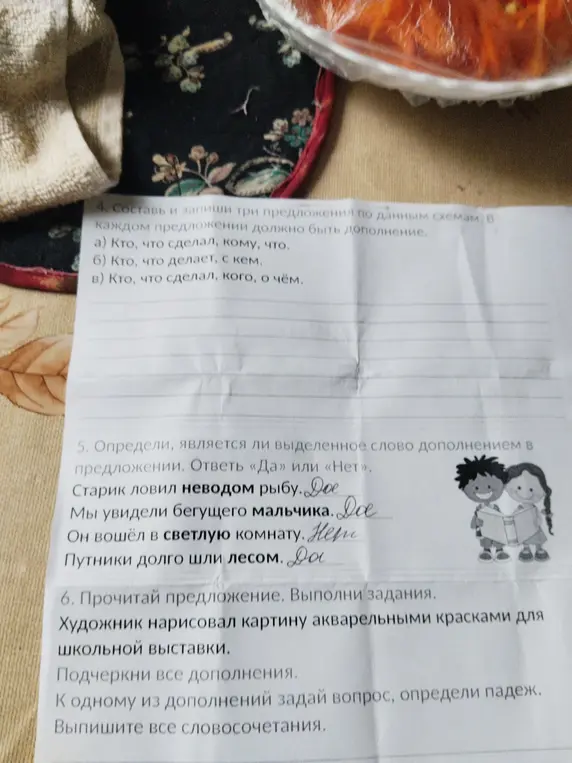 4. Составь и запиши три предложения по данным схемам. В
каждом предложении должно быть дополнение.
а) Кто, что сделал, кому, что.
б) Кто, что делает, с кем.
в) Кто, что сделал, кого, о чём.
5. Определи, является ли выделенное слово дополнением в
предложении. Ответь «Да» или «Нет».
Старик ловил неводом рыбу. Да
Мы увидели бегущего мальчика. Да
Он вошёл в светлую комнату. Нет
Путники долго шли лесом. Да
6. Прочитай предложение. Выполни задания.
Художник нарисовал картину акварельными красками для
школьной выставки.
Подчеркни все дополнения.
К одному из дополнений задай вопрос, определи падеж.
Выпишите все словосочетания.